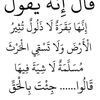 قال إنه يقول
إنها بقرة لا ذلول تثير
الأرض ولا تسقي الحرث
مسلمة لا شية فيها
قالوا...... جئت بالحق